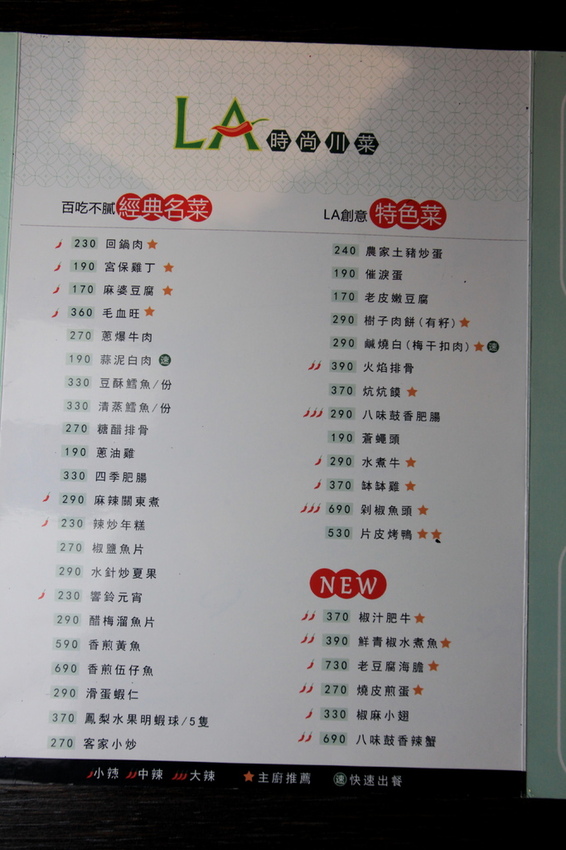 LA 時尚川菜
百吃不膩 經典名菜
230 回鍋肉
190 宮保雞丁
170 麻婆豆腐
360 毛血旺
270 蔥爆牛肉
190 蒜泥白肉 速
330 豆酥鱈魚/份
330 清蒸鱈魚/份
270 糖醋排骨
190 蔥油雞
330 四季肥腸
290 麻辣關東煮
230 辣炒年糕
270 椒鹽魚片
290 水針炒夏果
230 響鈴元宵
290 醋梅溜魚片
590 香煎黃魚
690 香煎伍仔魚
290 滑蛋蝦仁
370 鳳梨水果明蝦球/5隻
270 客家小炒
LA創意 特色菜
240 農家土豬炒蛋
190 催淚蛋
170 老皮嫩豆腐
290 樹子肉餅(有籽)
290 鹹燒白(梅干扣肉) 速
390 火焰排骨
370 炕炕饃
290 八味鼓香肥腸
190 蒼蠅頭
290 水煮牛
370 缽缽雞
690 剁椒魚頭
530 片皮烤鴨
NEW
370 椒汁肥牛
390 鮮青椒水煮魚
730 老豆腐海膽
270 燒皮煎蛋
330 椒麻小翅
690 八味鼓香辣蟹
小辣 中辣 大辣 主廚推薦 速 快速出餐